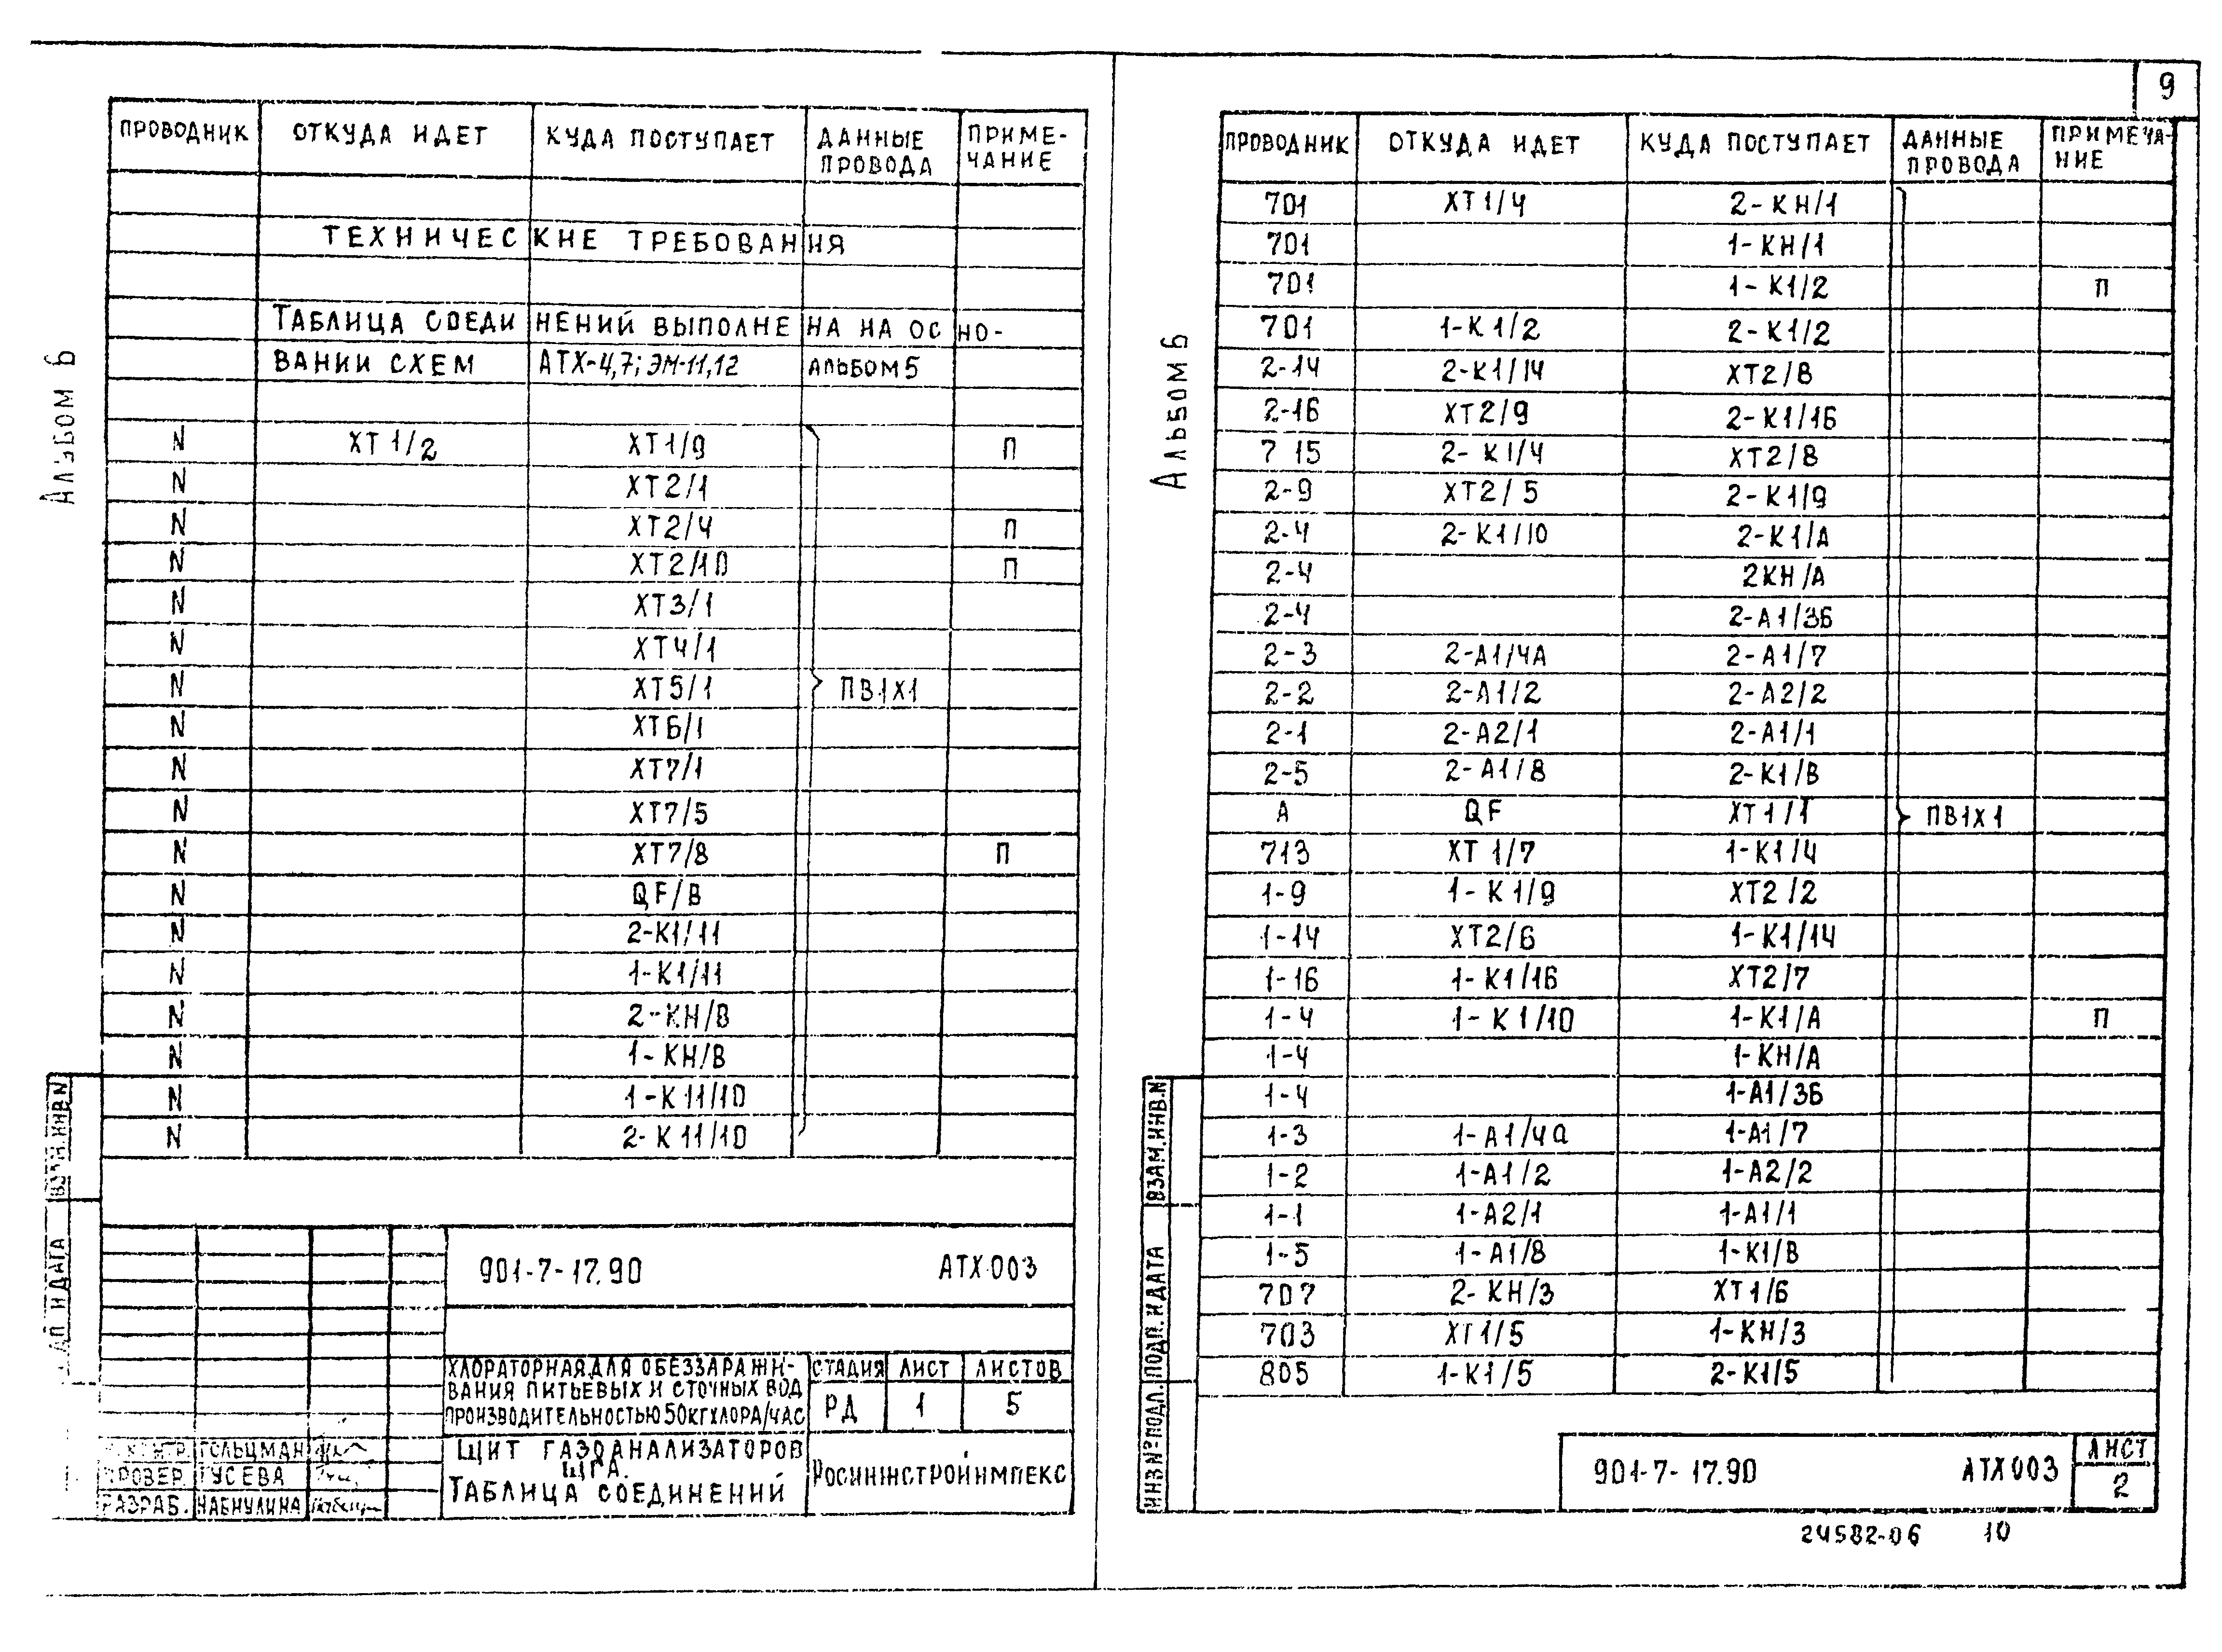 9
Альбом 6
ПРОВОДНИК ОТКУДА ИДЕТ КУДА ПОСТУПАЕТ ДАННЫЕ ПРОВОДА ПРИМЕ-ЧАНИЕ
ТЕХНИЧЕСКИЕ ТРЕБОВАНИЯ
ТАБЛИЦА СОЕДИНЕНИЙ ВЫПОЛНЕНА НА ОСНО-
ВАНИИ СХЕМ АТХ-4,7; ЭМ-11,12 АЛЬБОМ 5
N ХТ1/2 ХТ1/9 П
N ХТ2/1
N ХТ2/4 П
N ХТ2/10 П
N ХТ3/1
N ХТ4/1
N ХТ5/1 ПВ1Х1
N ХТ6/1
N ХТ7/1
N ХТ7/5
N ХТ7/8 П
N QF/В
N 2-К1/11
N 1-К1/11
N 2-КН/В
N 1-КН/В
N 1-К11/10
N 2-К11/10
ВЗАМ.ИНВ.N
901-7-17.90 АТХ003
ХЛОРАТОРНАЯ ДЛЯ ОБЕЗЗАРАЖИ-
ВАНИЯ ПИТЬЕВЫХ И СТОЧНЫХ ВОД
ПРОИЗВОДИТЕЛЬНОСТЬЮ 50КГ ХЛОРА/ЧАС
СТАДИЯ ЛИСТ ЛИСТОВ
РД 1 5
ГОЛЬЦМАН
ПРОВЕР. ГУСЕВА
РАЗРАБ. НАБИУЛИНА
ЩИТ ГАЗОАНАЛИЗАТОРОВ
ЩГА.
ТАБЛИЦА СОЕДИНЕНИЙ
РОСИНЖСТРОЙИМПЕКС
Альбом 6
ПРОВОДНИК ОТКУДА ИДЕТ КУДА ПОСТУПАЕТ ДАННЫЕ ПРОВОДА ПРИМЕЧА-НИЕ
701 ХТ1/4 2-КН/1
701 1-КН/1
701 1-К1/2 П
701 1-К1/2 2-К1/2
2-14 2-К1/14 ХТ2/8
2-16 ХТ2/9 2-К1/16
715 2-К1/4 ХТ2/8
2-9 ХТ2/5 2-К1/9
2-4 2-К1/10 2-К1/А
2-4 2КН/А
2-4 2-А1/3Б
2-3 2-А1/4А 2-А1/7
2-2 2-А1/2 2-А2/2
2-1 2-А2/1 2-А1/1
2-5 2-А1/8 2-К1/В
А QF ХТ1/1 ПВ1Х1
713 ХТ1/7 1-К1/4
1-9 1-К1/9 ХТ2/2
1-14 ХТ2/6 1-К1/14
1-16 1-К1/16 ХТ2/7
1-4 1-К1/10 1-К1/А П
1-4 1-КН/А
1-4 1-А1/3Б
1-3 1-А1/4а 1-А1/7
1-2 1-А1/2 1-А2/2
1-1 1-А2/1 1-А1/1
1-5 1-А1/8 1-К1/В
707 2-КН/3 ХТ1/6
703 ХТ1/5 1-КН/3
805 1-К1/5 2-К1/5
ВЗАМ.ИНВ.N
ПОДП. И ДАТА
ИНВ N° ПОДЛ.
901-7-17.90 АТХ003
ЛИСТ
2
24582-06 10